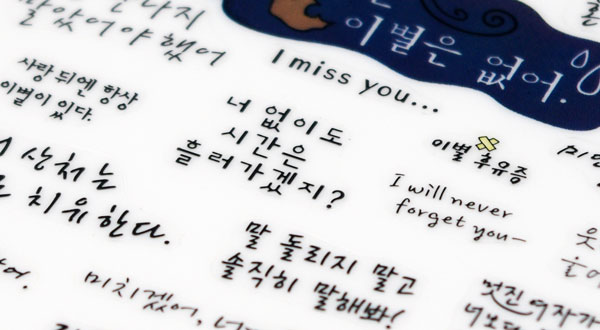 았어야 했어
이별은 없어.
I miss you...
사랑 뒤엔 항상
이별이 있다.
너 없이도
시간은
흘러가겠지?
이별 후유증
I will never
forget you-
상처는
치유한다.
말 돌리지 말고
솔직히 말해봐!
미치겠어,
멋진 여자가